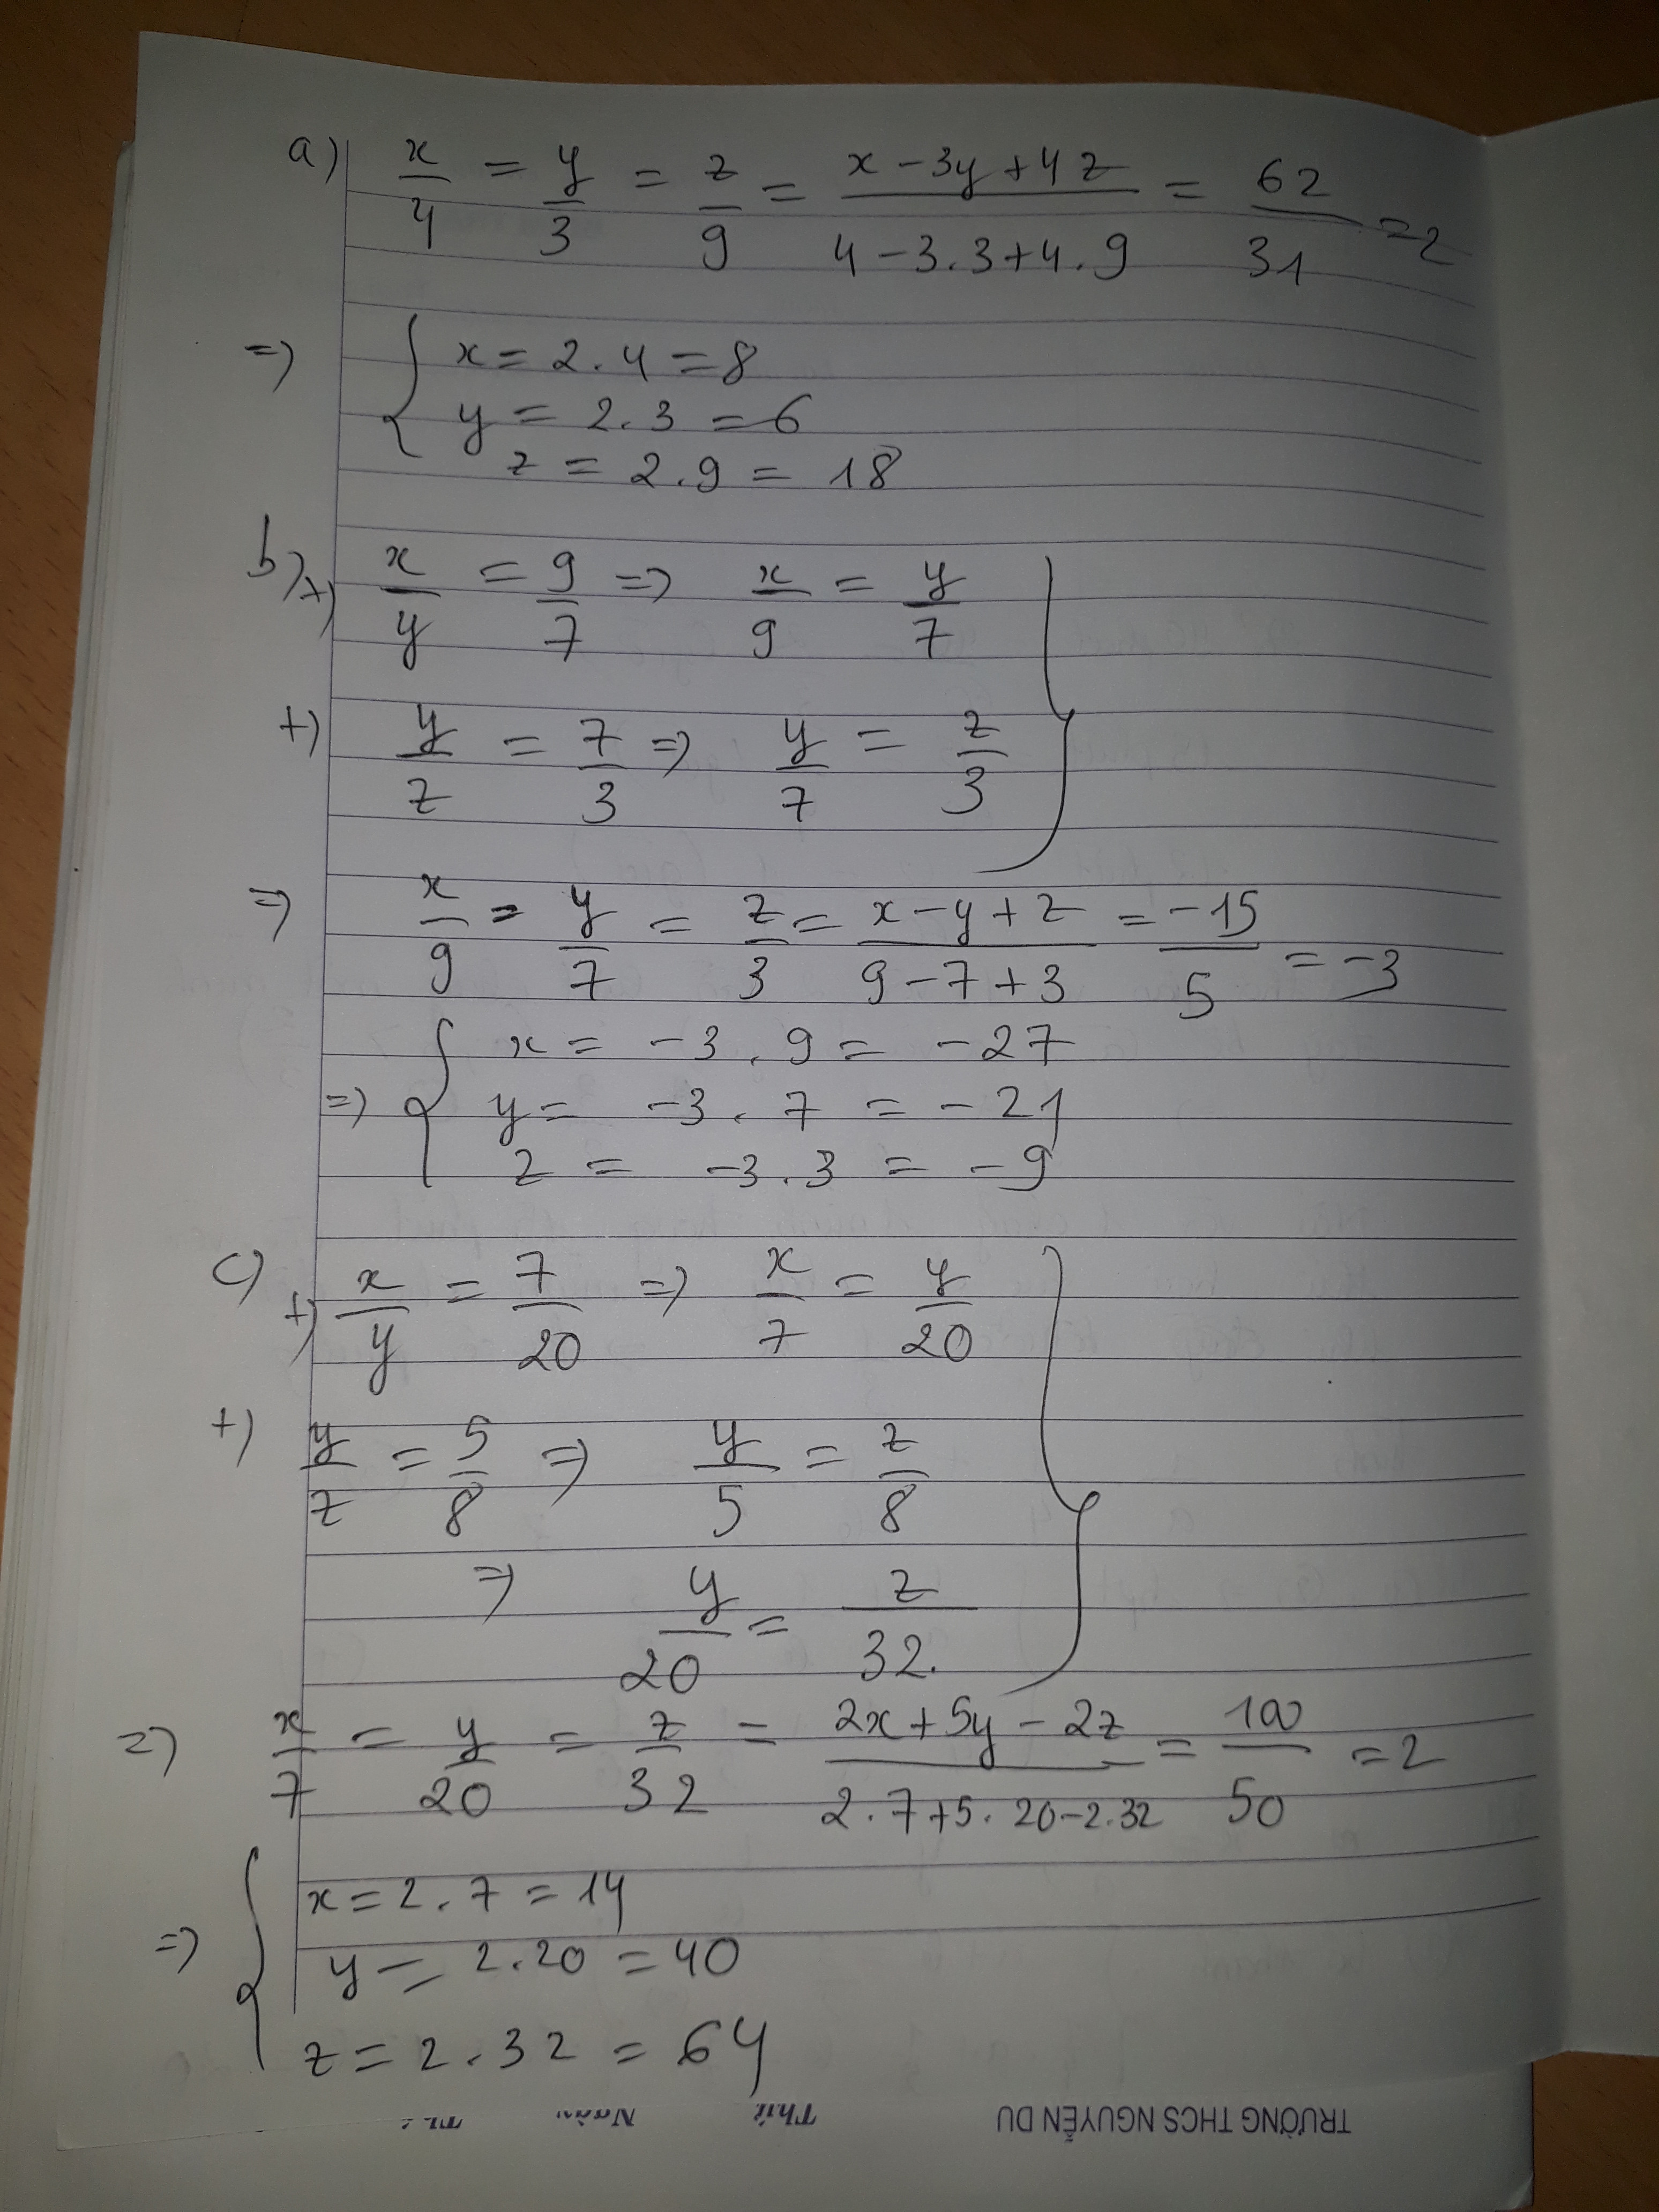 a) x/4 = y/3 = z/9 = (x-3y+4z)/(4-3.3+4.9) = 62/31 = 2
=> { x = 2.4 = 8
y = 2.3 = 6
z = 2.9 = 18
b) +) x/y = 9/7 => x/9 = y/7
+) y/z = 7/3 => y/7 = z/3 }
=> x/9 = y/7 = z/3 = (x-y+z)/(9-7+3) = -15/5 = -3
=> { x = -3.9 = -27
y = -3.7 = -21
z = -3.3 = -9
c) +) x/y = 7/20 => x/7 = y/20
+) y/z = 5/8 => y/5 = z/8
=> y/20 = z/32. }
=> x/7 = y/20 = z/32 = (2x+5y-2z)/(2.7+5.20-2.32) = 100/50 = 2
=> { x = 2.7 = 14
y = 2.20 = 40
z = 2.32 = 64
TRƯỜNG THCS NGUYỄN DU Thứ